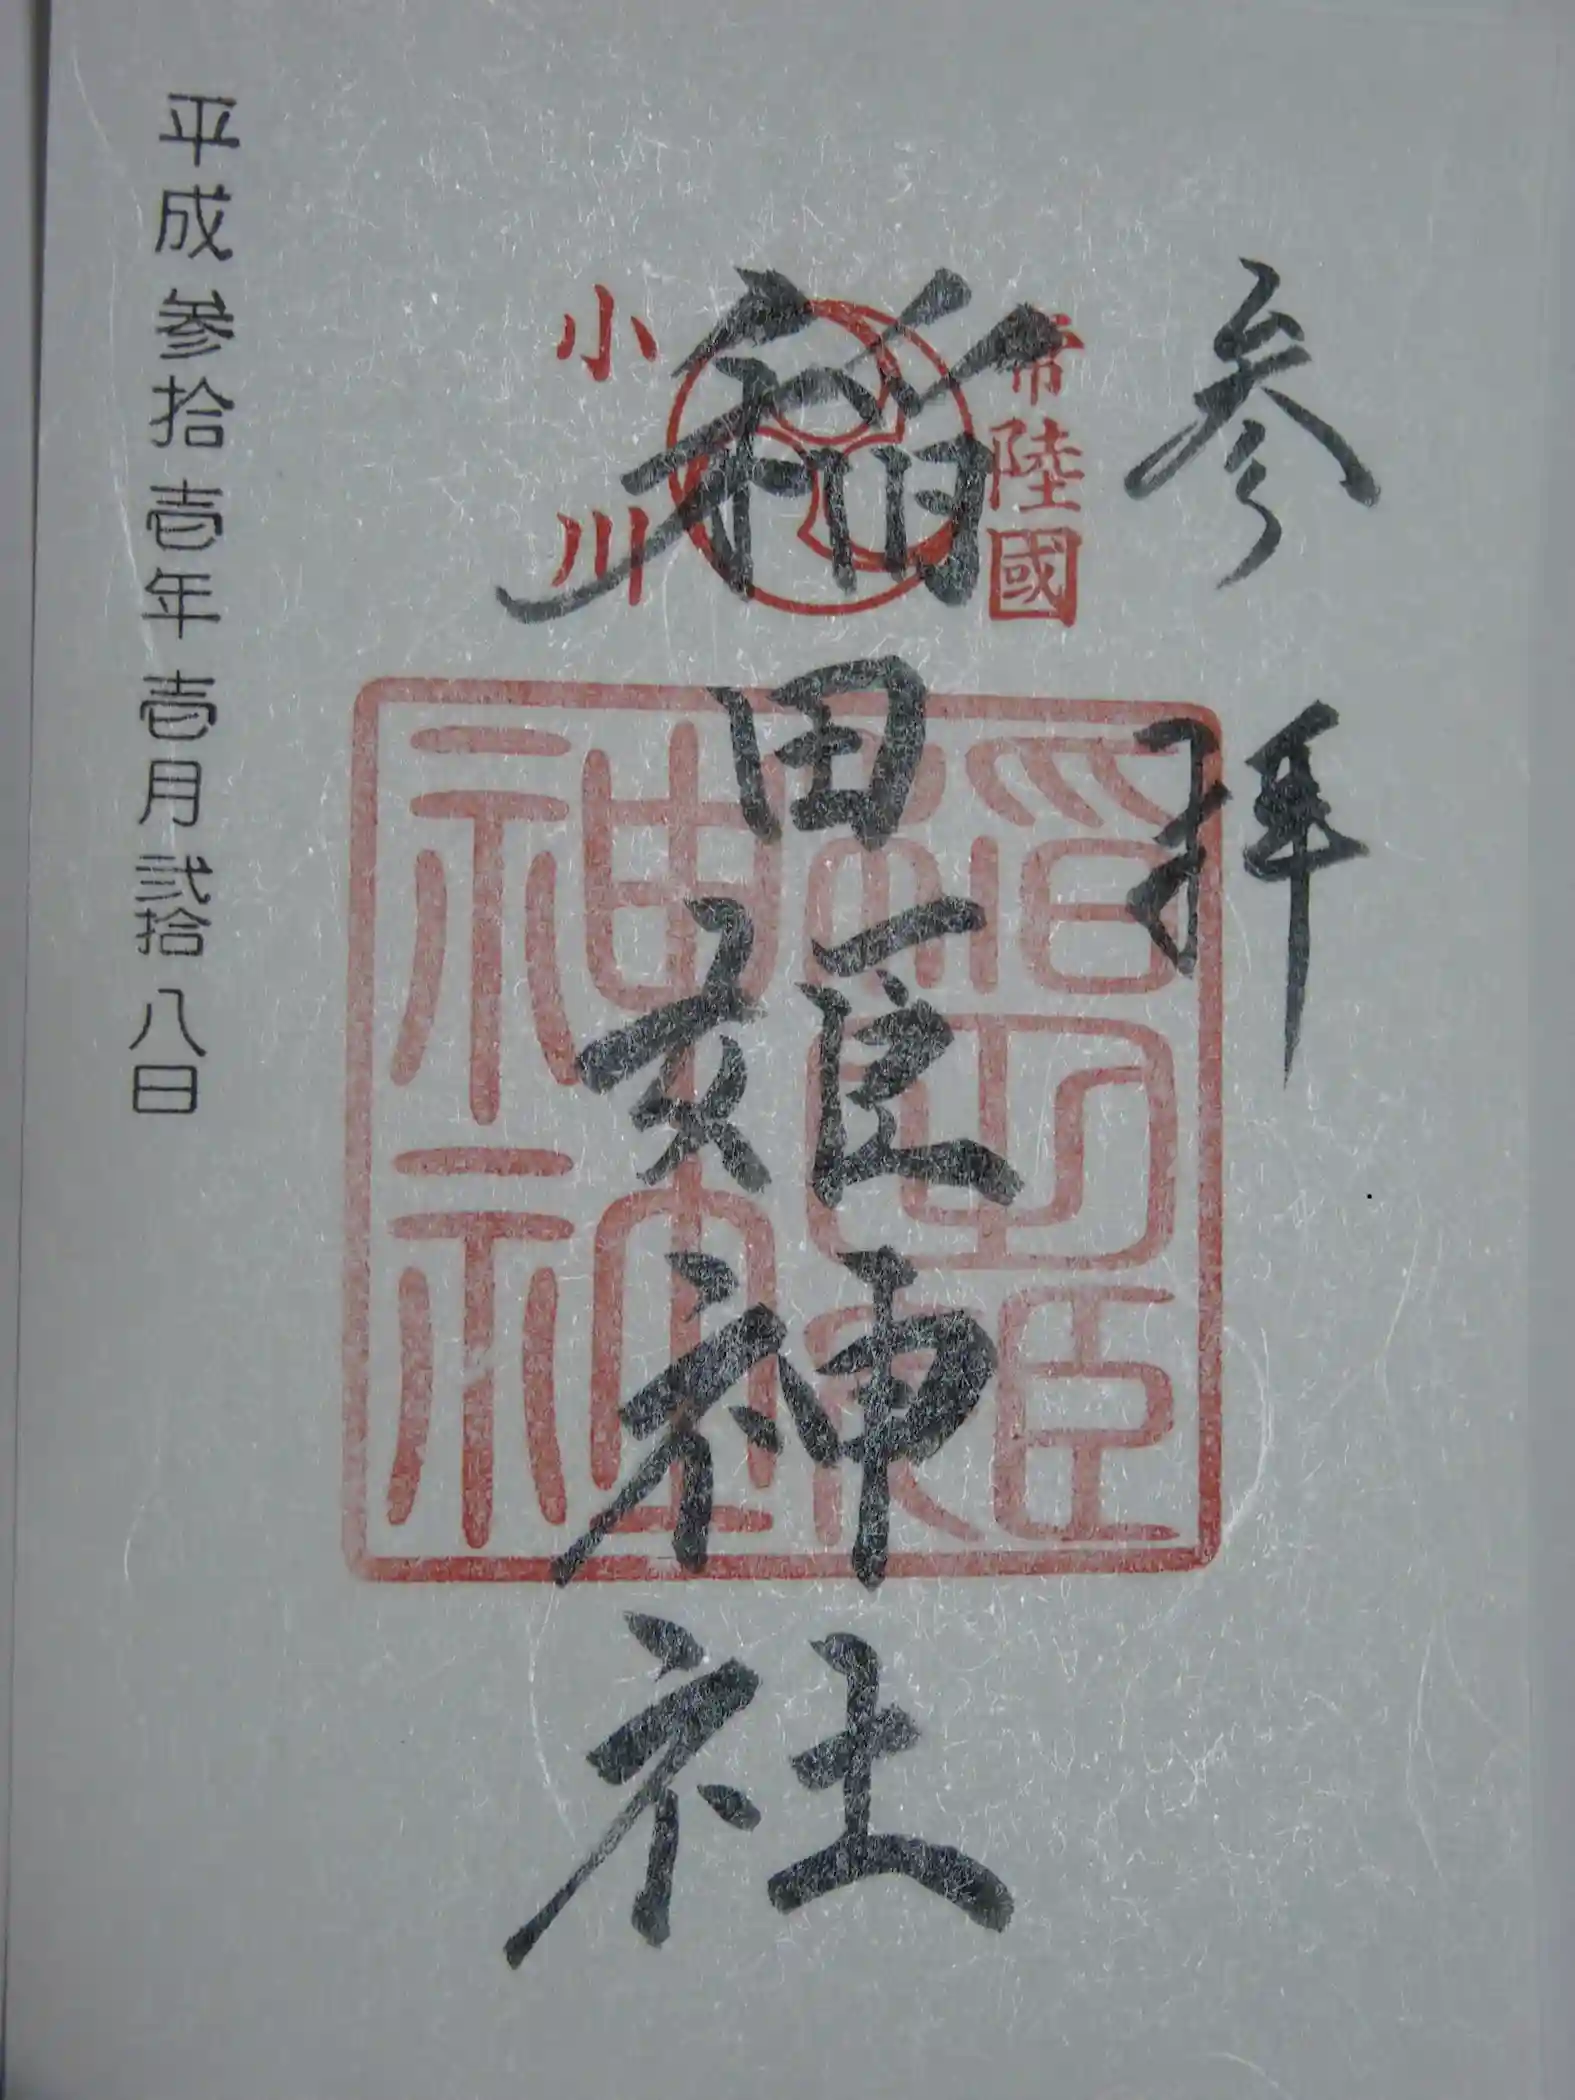 参拝
常陸國
稲田姫神社
小川
稲田姫
神社
平成参拾壱年壱月弐拾八日